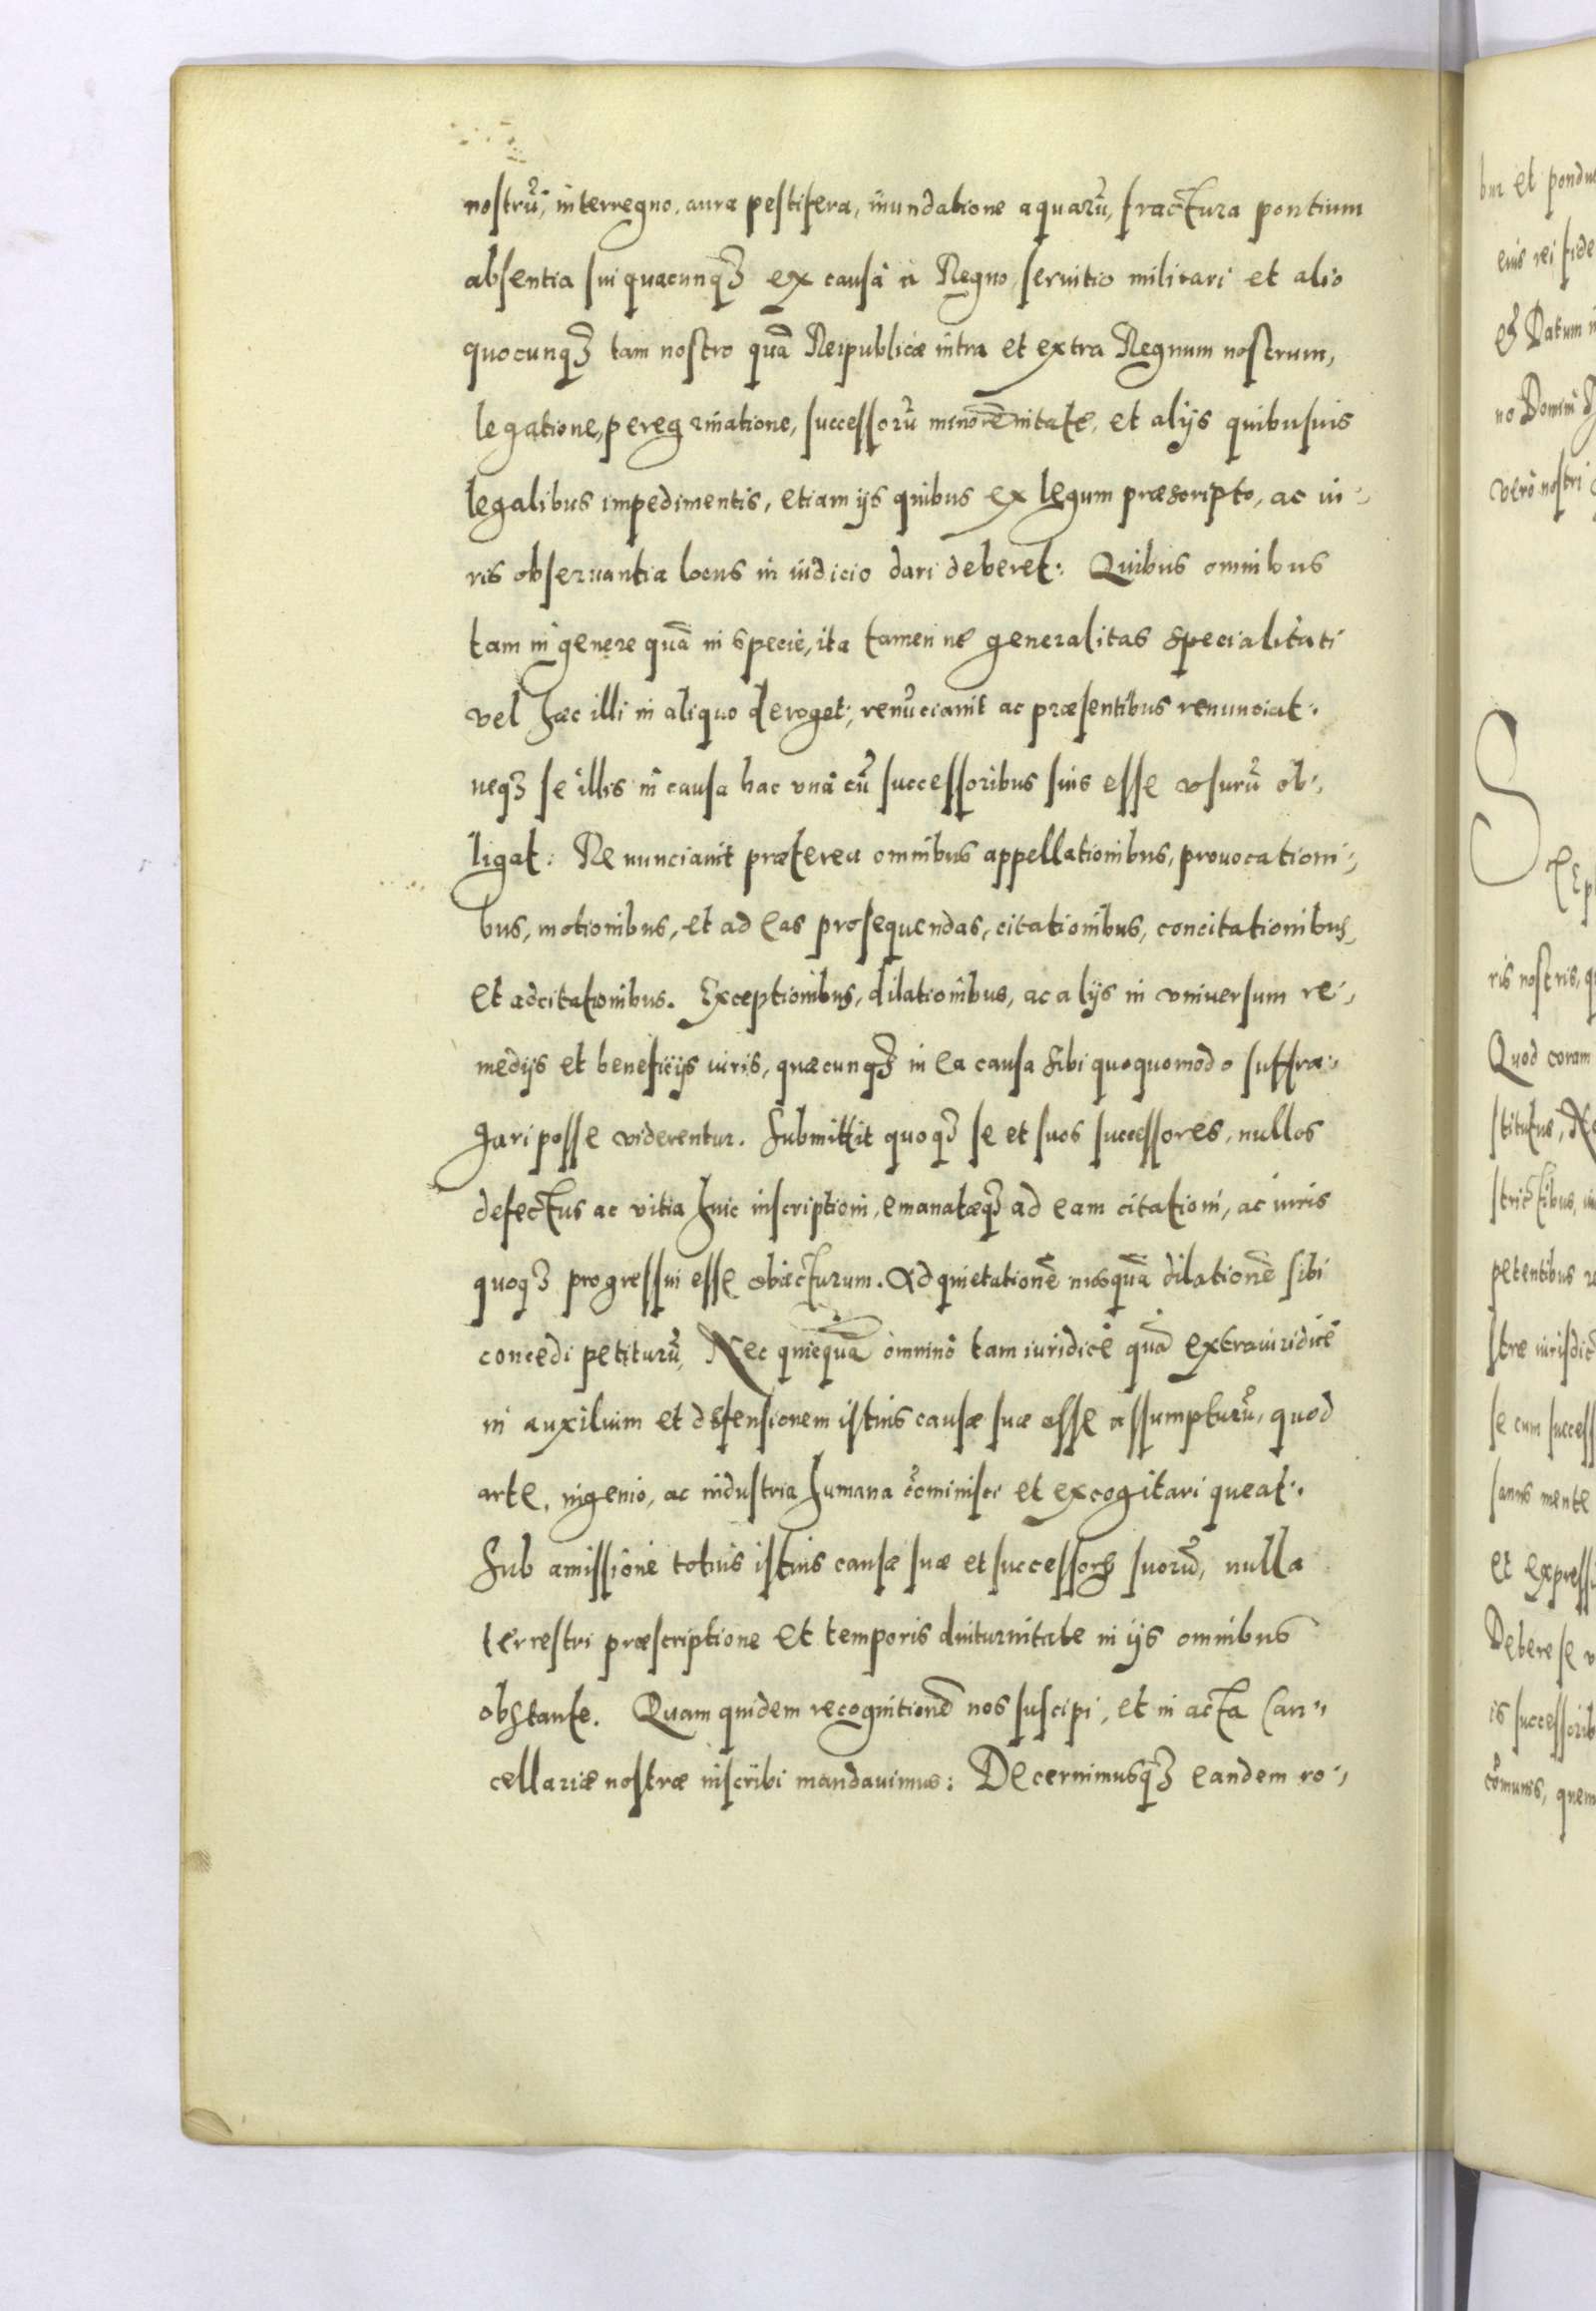 nostrũ, interregno, aura pestifera, inundatione aquarũ, fractura pontium
absentia sui quacunq3 ex causâ a Regno, seruitio militari et alio
quocunq3 tam nostro quã Reipublicæ intra et extra Regnum nostrum,
legatione, peregrinatione, successorũ minorennitate, et alijs quibusuis
legalibus impedimentis, etiam ijs quibus ex legum præscripto, ac iu-,
ris obseruantia locus in iudicio dari deberet: Quibus omnibus
tam in genere quã in specie, ita tamen ne generalitas specialitati
vel hæc illi in aliquo deroget, renũciauit ac præsentibus renunciat.
neq3 se illis in causa hac vnâ cũ successoribus suis esse vsurũ ob-,
ligat: Renunciauit præterea omnibus appellationibus, prouocationi-,
bus, motionibus, et ad eas prosequendas, citationibus, concitationibus,
et adcitationibus. Exceptionibus, dilationibus, ac alijs in vniuersum re-,
medijs et beneficijs iuris, quæcunq3 in ea causa sibi quoquomodo suffra-,
gari posse viderentur. Submittit quoq3 se et suos successores, nullos
defectus ac vitia huic inscriptioni, emanatæq3 ad eam citationi, ac iuris
quoq3 progressui esse obiecturum. Ad quietationẽ nusquã dilationẽ sibi
concedi petiturũ, Nec quicquã omninò tam iuridicè quã extraiuridicè
in auxilium et defensionem istius causæ suæ esse assumpturũ, quod
arte, ingenio, ac industria humana cõminisci et excogitari queat.
Sub amissione totius istius causæ suæ et successorũ suorũ, nulla
terrestri præscriptione et temporis diuturnitate in ijs omnibus
obstante. Quam quidem recognitionẽ nos suscipi, et in acta Can-,
cellariæ nostræ inscribi mandauimus: Decernimusq3 eandem ro-,
bur et
eius rei
Datum
no Domini
verò nostri
S
ris nostris,
Quod coram
petentibus
se cum
sanus mente
et
Debere se
cõmunis, quem